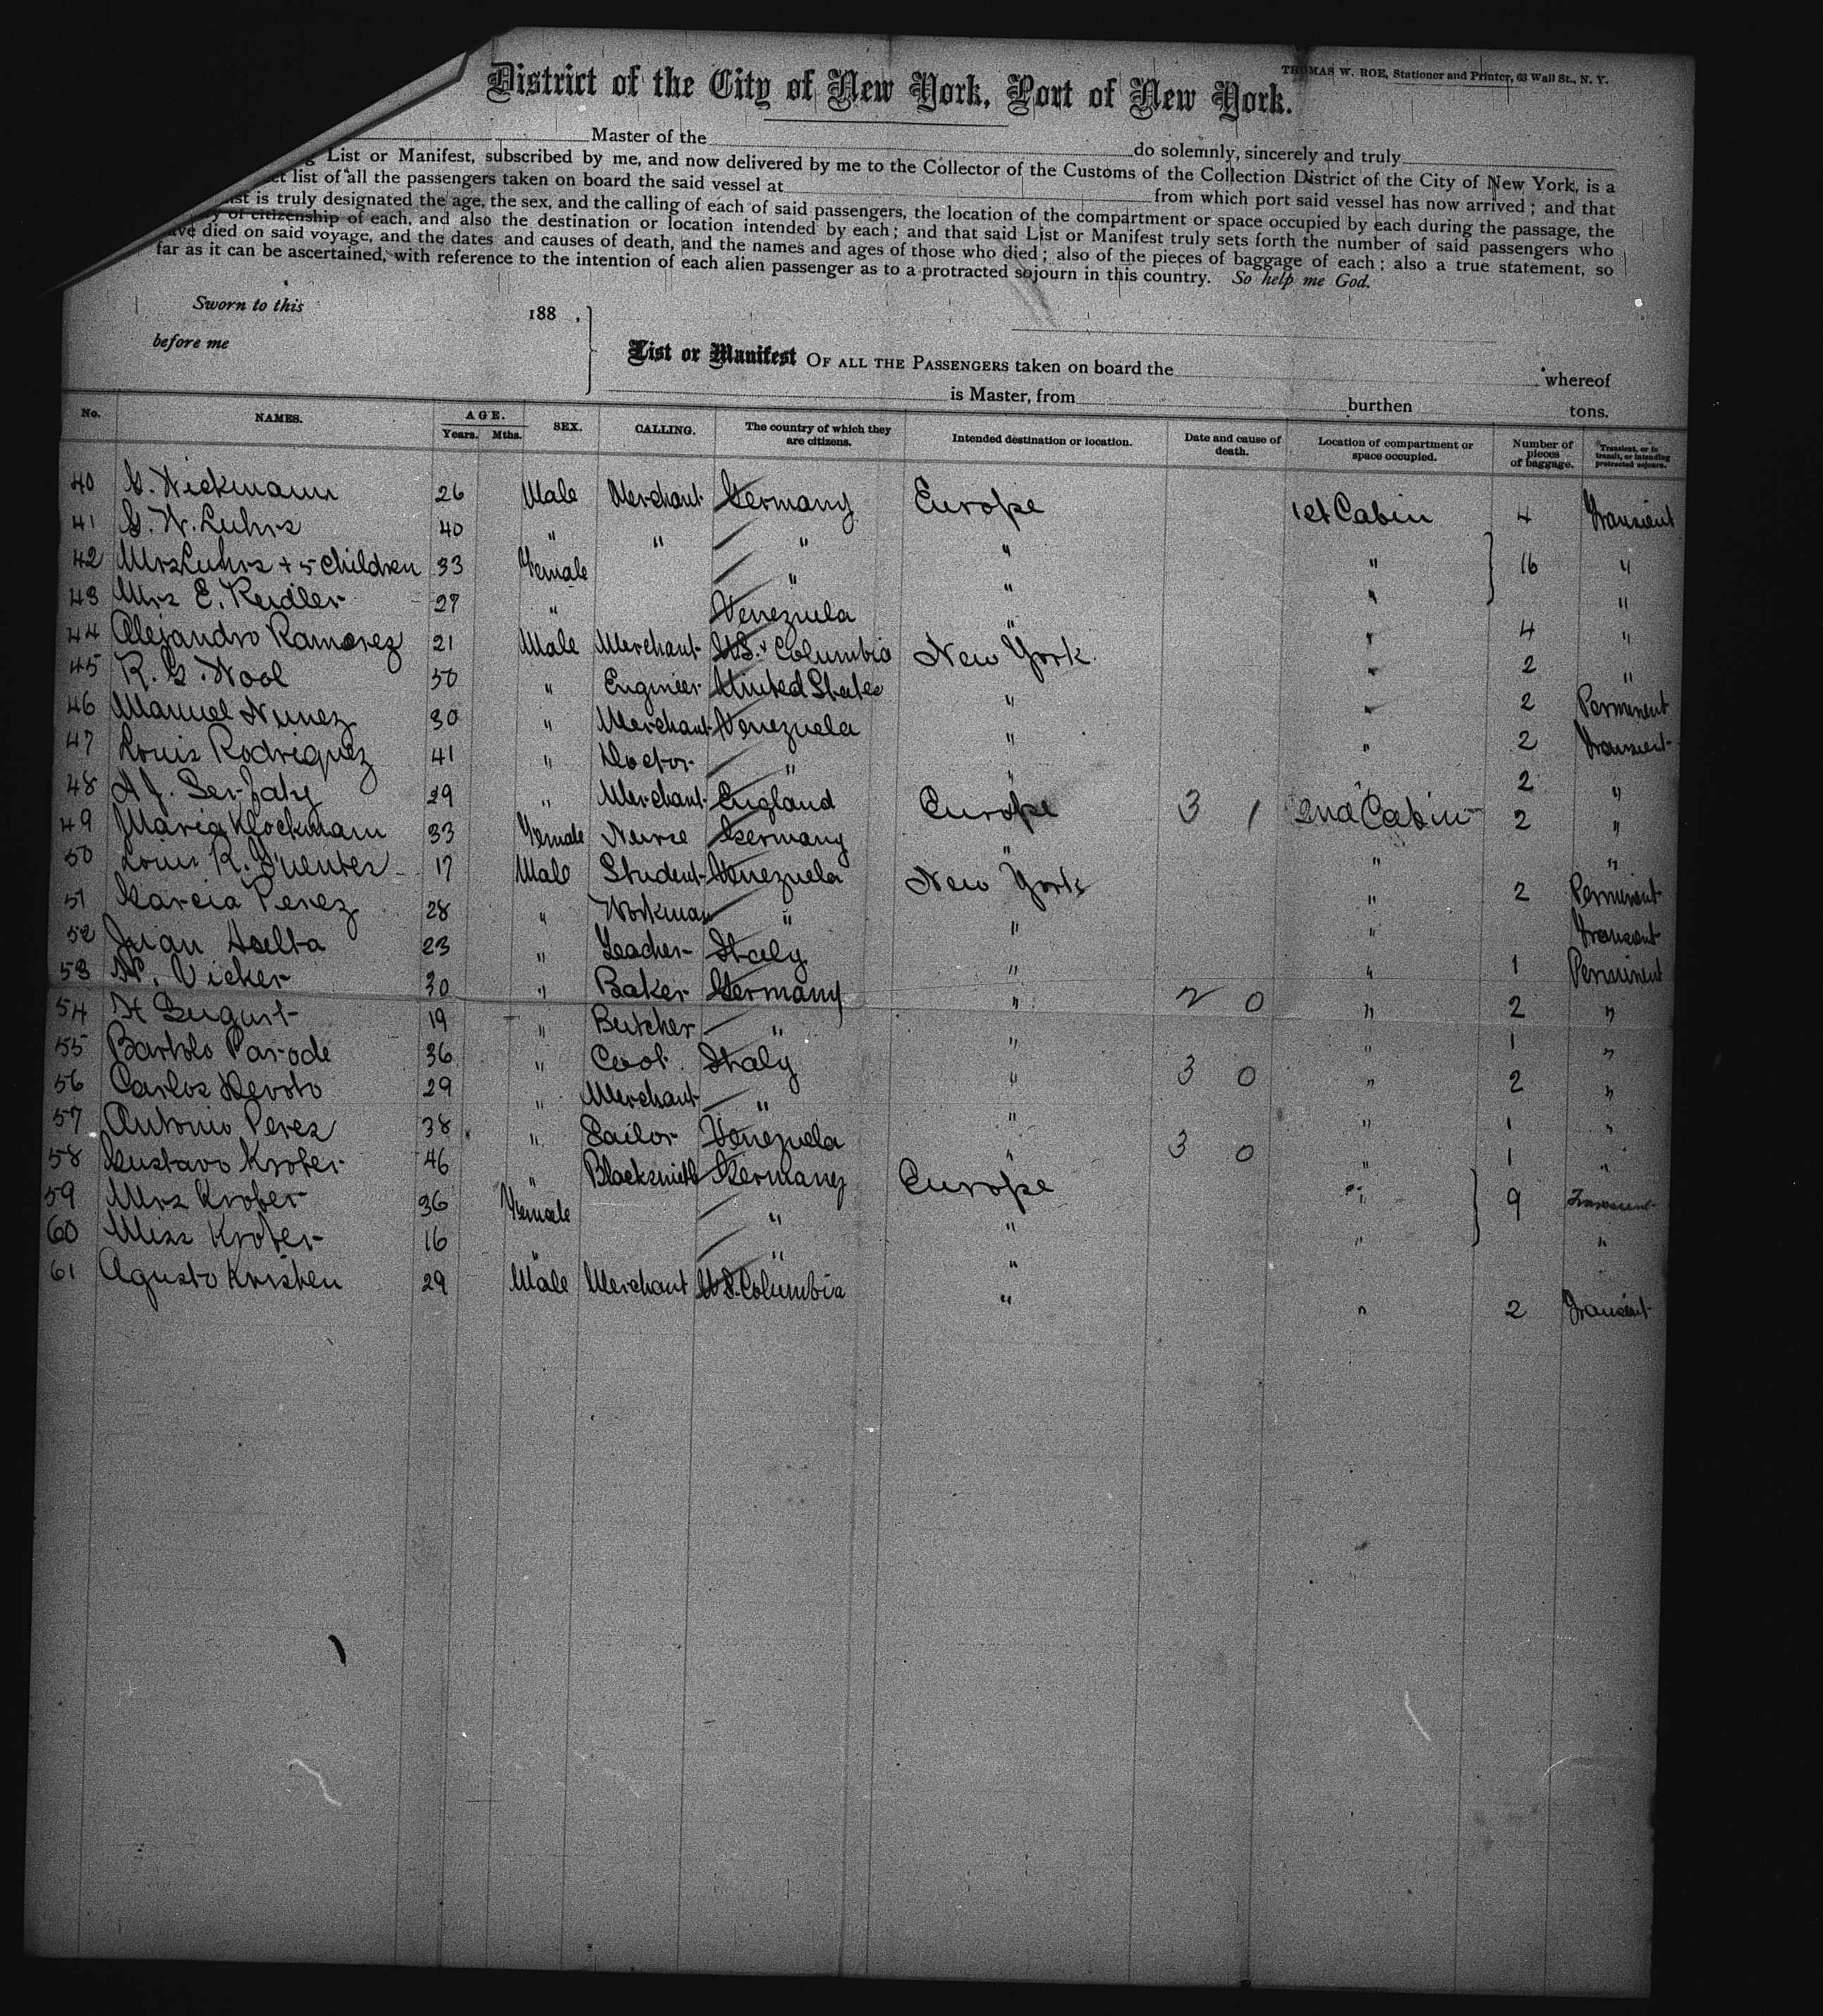 THOMAS W. ROE, Stationer and Printer, 63 Wall St., N. Y.
District of the City of New York, Port of New York.
Master of the do solemnly, sincerely and truly
List or Manifest, subscribed by me, and now delivered by me to the Collector of the Customs of the Collection District of the City of New York, is a
list of all the passengers taken on board the said vessel at from which port said vessel has now arrived; and that
is truly designated the age, the sex, and the calling of each of said passengers, the location of the compartment or space occupied by each during the passage, the
of citizenship of each, and also the destination or location intended by each; and that said List or Manifest truly sets forth the number of said passengers who
died on said voyage, and the dates and causes of death, and the names and ages of those who died; also of the pieces of baggage of each; also a true statement, so
far as it can be ascertained, with reference to the intention of each alien passenger as to a protracted sojourn in this country. So help me God.
Sworn to this 188 ,
before me
List or Manifest OF ALL THE PASSENGERS taken on board the whereof
is Master, from burthen tons.
No. NAMES. AGE. Years. Mths. SEX. CALLING. The country of which they are citizens. Intended destination or location. Date and cause of death. Location of compartment or space occupied. Number of pieces of baggage. Transient, or in transit, or intending protracted sojourn.
40 G. Wickmann 26 Male Merchant Germany Europe 1st Cabin 4 Transient
41 G. W. Luhrs 40 " " " " " 16 "
42 Mrs Luhrs + 5 children 33 Female " " " "
43 Mrs E. Reidler 27 " Venezuela " " 4 "
44 Alejandro Ramorez 21 Male Merchant U.S. Columbia New York " 2 "
45 R. G. Wool 50 " Engineer United States " " 2 Perminent
46 Manuel Nunez 30 " Merchant Venezuela " " 2 Transient
47 Louis Rodriquez 41 " Doctor " " " 2 "
48 A J. 29 " Merchant England Europe 3 1 2nd Cabin 2 "
49 Maria Klockmann 33 Female Nurse Germany " " "
50 Louis R. 17 Male Student Venezuela New York " 2 Perminent
51 Garcia Perez 28 " Workman " " " Transient
52 Juan 23 " Teacher Italy " " 1 Perminent
53 W. Vicker 30 " Baker Germany " 2 0 " 2 "
54 August 19 " Butcher " " " 1 "
55 Bartolo Parode 36 " Cook Italy " 3 0 " 2 "
56 Carlos Devoto 29 " Merchant " " " 1 "
57 Antonio Perez 38 " Sailor Venezuela " 3 0 " 1 "
58 Gustavo Krober 46 " Blacksmith Germany Europe " 9 Transient
59 Mrs Krober 36 Female " " " "
60 Miss Krober 16 " " "
61 Agusto Kristen 29 Male Merchant U.S. Columbia " " 2 Transient